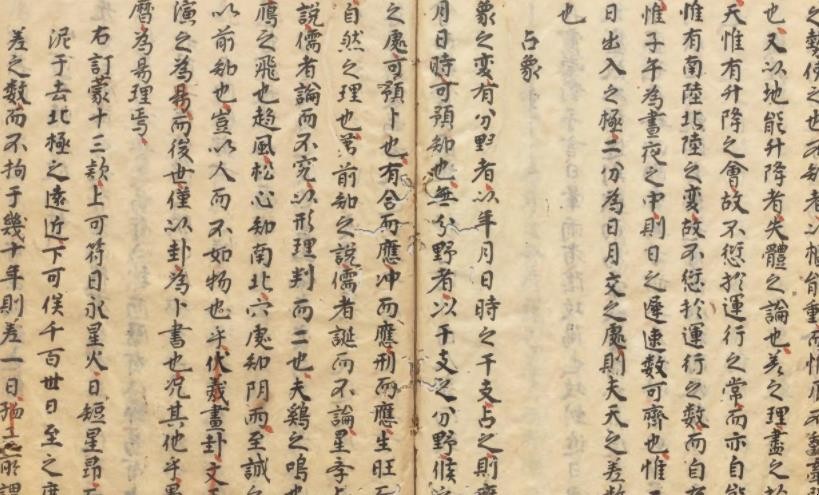 之勢使之也不知者以
也又以地能升降者失體之論也差之理盡之
天惟有升降之會故不愆於運行之常而亦自能
惟有南陸北陸之變故不愆於運行之數而自
惟子午為晝夜之中則日之遲速數可齊也惟
日出入之極二分為日月交之處則夫天之差數
也
占象
象之变有分野者以年月日時之干支占之則
月日時可預知也無分野者以干支之分野候之
之處可預卜也有合而應冲而應刑而應生旺
自然之理也若前知之說儒者誕而不論星
說儒者論而不究以形理判而二也夫鷄之鳴也
鴈之飛也趋風松心知南北穴處知阴雨至誠
以前知也豈以人而不如物也乎伏羲畫卦文王
演之為易而後世僅以卦為卜書也况其他乎
曆為易理焉
右訂蒙十三欵上可符日永星火日短星昴
泥于去北極之遠近下可俟千百世日至之度
差之數而不拘于幾十年則差一日